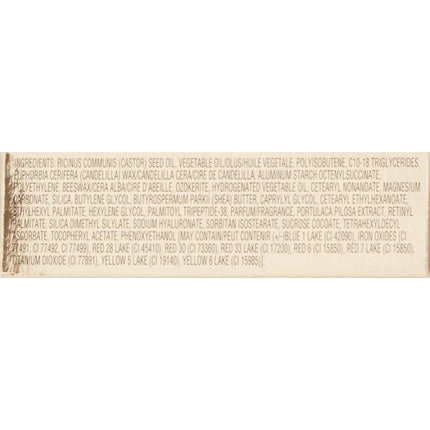 INGREDIENTS: RICINUS COMMUNIS (CASTOR) SEED OIL, VEGETABLE OIL/OLUS/HUILE VEGETALE, POLYISOBUTENE, C10-18 TRIGLYCERIDES,
EUPHORBIA CERIFERA (CANDELILLA) WAX/CANDELILLA CERA/CIRE DE CANDELILLA, ALUMINUM STARCH OCTENYLSUCCINATE,
POLYETHYLENE, BEESWAX/CERA ALBA/CIRE D'ABEILLE, OZOKERITE, HYDROGENATED VEGETABLE OIL, CETEARYL NONANOATE, MAGNESIUM
CARBONATE, SILICA, BUTYLENE GLYCOL, BUTYROSPERMUM PARKII (SHEA) BUTTER, CAPRYLYL GLYCOL, CETEARYL ETHYLHEXANOATE,
ETHYLHEXYL PALMITATE, HEXYLENE GLYCOL, PALMITOYL TRIPEPTIDE-38, PARFUM/FRAGRANCE, PORTULACA PILOSA EXTRACT, RETINYL
PALMITATE, SILICA DIMETHYL SILYLATE, SODIUM HYALURONATE, SORBITAN ISOSTEARATE, SUCROSE COCOATE, TETRAHEXYLDECYL
ASCORBATE, TOCOPHERYL ACETATE, PHENOXYETHANOL [MAY CONTAIN/PEUT CONTENIR (+/-)BLUE 1 LAKE (CI 42090), IRON OXIDES (CI
77491, CI 77492, CI 77499), RED 28 LAKE (CI 45410), RED 30 (CI 73360), RED 33 LAKE (CI 17200), RED 6 (CI 15850), RED 7 LAKE (CI 15850),
TITANIUM DIOXIDE (CI 77891), YELLOW 5 LAKE (CI 19140), YELLOW 6 LAKE (CI 15985)]